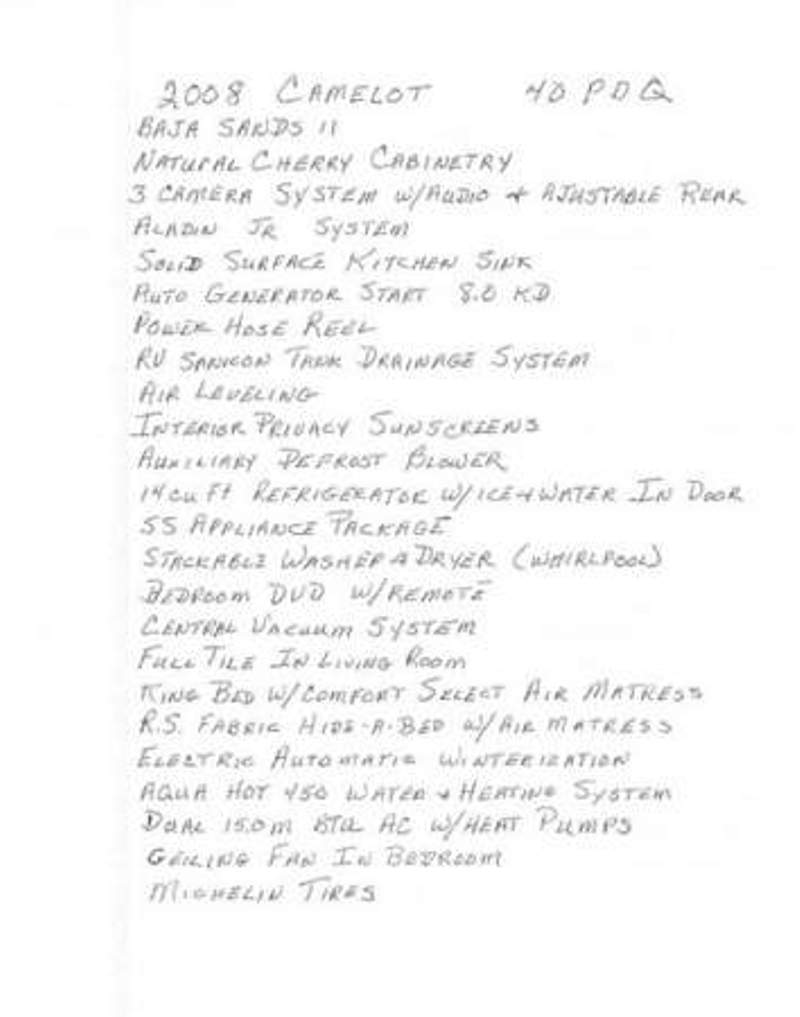 2008 CAMELOT 40 PDQ
BAJA SANDS II
NATURAL CHERRY CABINETRY
3 CAMERA SYSTEM W/AUDIO + AJUSTABLE REAR
ALADIN JR SYSTEM
SOLID SURFACE KITCHEN SINK
AUTO GENERATOR START 8.0 KD
POWER HOSE REEL
RV SANICON TANK DRAINAGE SYSTEM
AIR LEVELING
INTERIOR PRIVACY SUNSCREENS
AUXILIARY DEFROST BLOWER
14 CU FT REFRIGERATOR W/ICE + WATER IN DOOR
SS APPLIANCE PACKAGE
STACKABLE WASHER & DRYER (WHIRLPOOL)
BEDROOM DVD W/REMOTE
CENTRAL VACUUM SYSTEM
FULL TILE IN LIVING ROOM
KING BED W/COMFORT SELECT AIR MATRESS
R.S. FABRIC HIDE-A-BED W/AIR MATRESS
ELECTRIC AUTOMATIC WINTERIZATION
AQUA HOT 450 WATER + HEATING SYSTEM
DUAL 15.0 M BTU AC W/HEAT PUMPS
CEILING FAN IN BEDROOM
MICHELIN TIRES